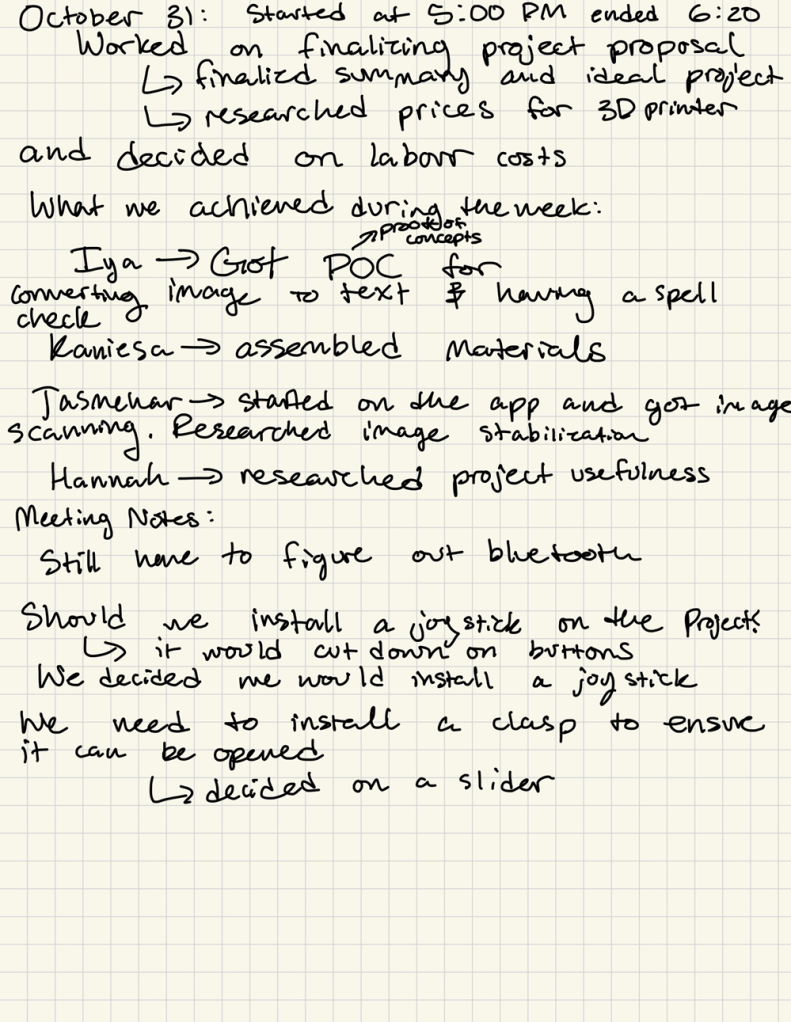 October 31: Started at 5:00 PM ended 6:20
Worked on finalizing project proposal
↳ finalizd summary and ideal project
↳ researched prices for 3D printer
and decided on labour costs
What we achieved during the week:
↗ proof of
concepts
Iya → Got POC for
converting image to text & having a spell
check
Raniesa → assembled Materials
Tasmenar → started on the app and got image
scanning. Researched image stabilization
Hannah → researched project usefulness
Meeting Notes:
Still have to figure out bluetooth
Should we install a joystick on the Project?
↳ it would cut down on buttons
We decided we would install a joystick
We need to install a clasp to ensure
it can be opened
↳ decided on a slider